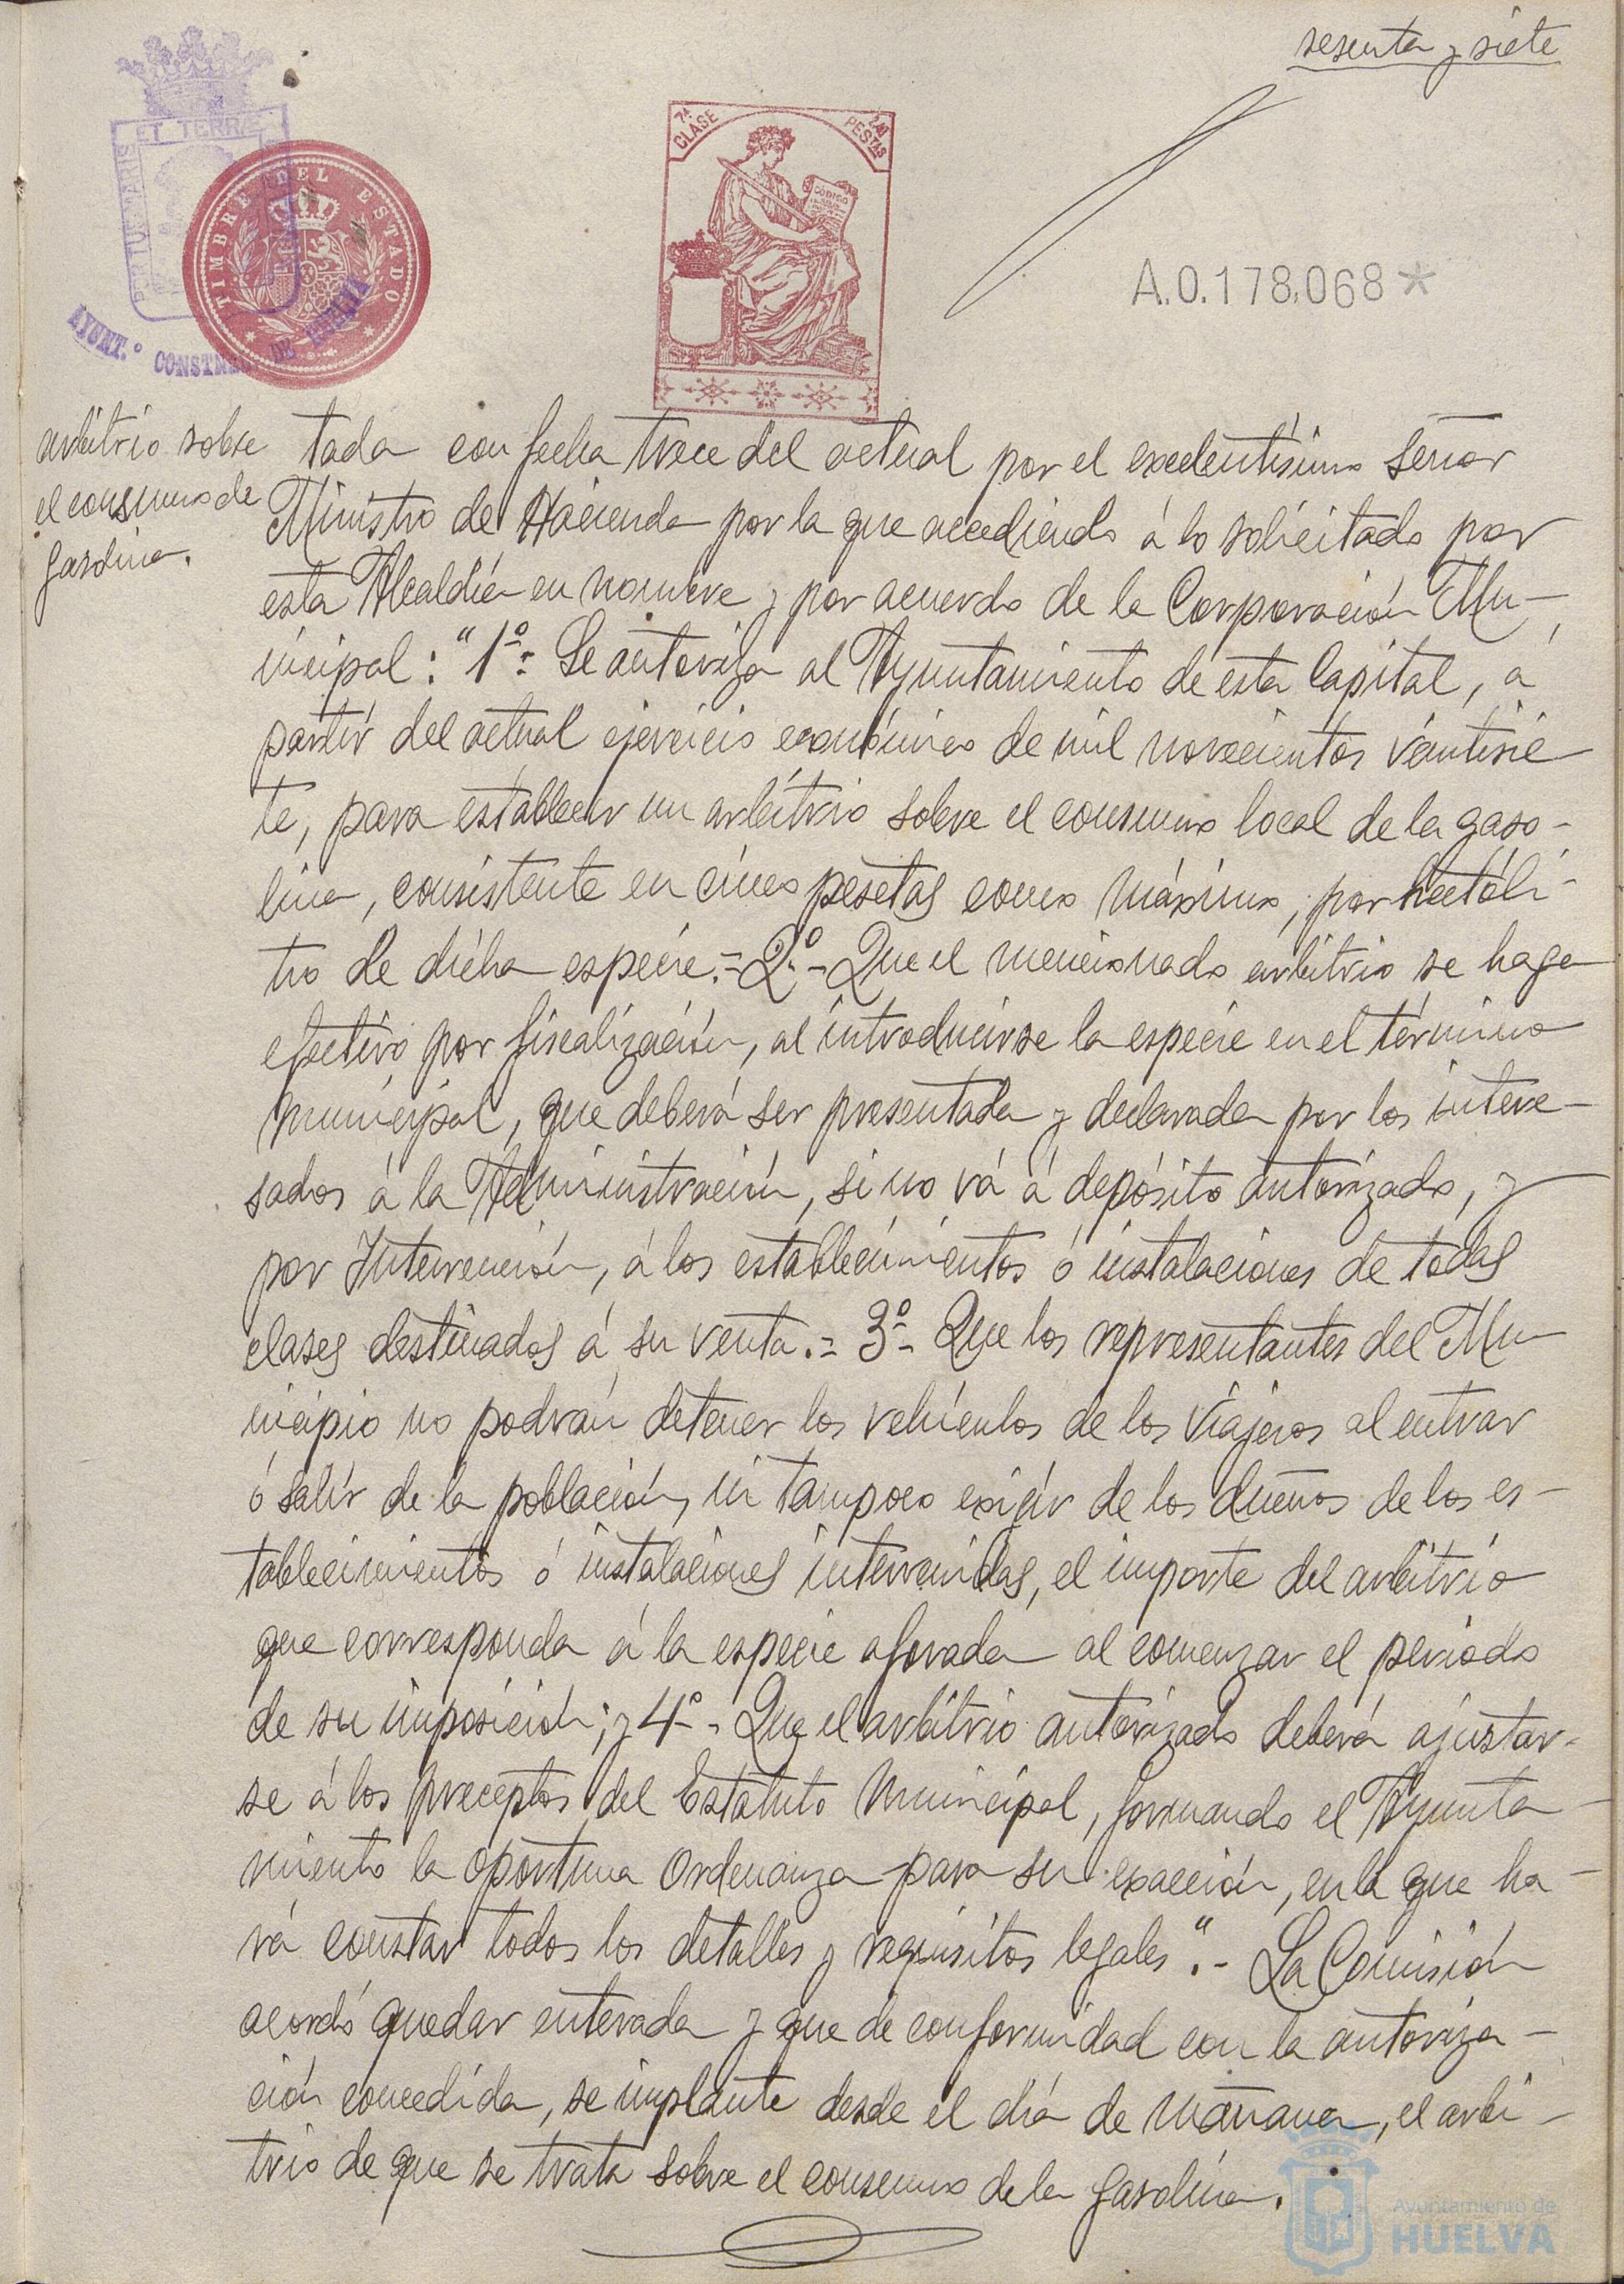 sesenta y siete
ET TERRÆ
PORTUS MARIS
TIMBRE DEL ESTADO
AYUNT.º CONSTNAL DE HUELVA
7ª CLASE
2,40 PESTAS
CÓDIGO
A.0.178.068*
arbitrio sobre
el consumo de
gasolina.
tada con fecha trece del actual por el excelentísimo señor
Ministro de Hacienda por la que accediendo á lo solicitado por
esta Alcaldía en nombre y por acuerdo de la Corporación Mu-
nicipal: "1º- Se autoriza al Ayuntamiento de esta Capital, á
partír del actual ejercicio económico de mil novecientos véintisie-
te, para establecer un arbítrio sobre el consumo local de la gaso-
lina, consistente en cinco pesetas como máximo, por hectóli-
tro de dicha especie.=2º- Que el mencionado arbítrio se haga
efectivo por fiscalización, al introducirse la especie en el término
municipal, que deberá ser presentada y declarada por los intere-
sados á la Administración, si no vá á depósito autorizado, y
por Intervención, á los establecimientos ó instalaciones de todas
clases destinados á su venta.= 3º- Que los representantes del Mu-
nicipio no podrán detener los vehículos de los viajeros al entrar
ó salír de la población, ni tampoco exigír de los dueños de los es-
tablecimientos ó instalaciones intervenidas, el importe del arbitrio
que corresponda á la especie aforada al comenzar el periodo
de su imposición; y 4º- Que el arbítrio autorizado deberá ajustar-
se á los preceptos del Estatuto Municipal, formando el Ayunta-
miento la oportuna Ordenanza para su exacción, en la que ha-
rá constar todos los detalles y requisitos legales".- La Comisión
acordó quedar enterada y que de conformidad con la autoriza-
ción concedida, se implante desde el día de mañana, el arbi-
trio de que se trata sobre el consumo de la gasolina.
Ayuntamiento de
HUELVA